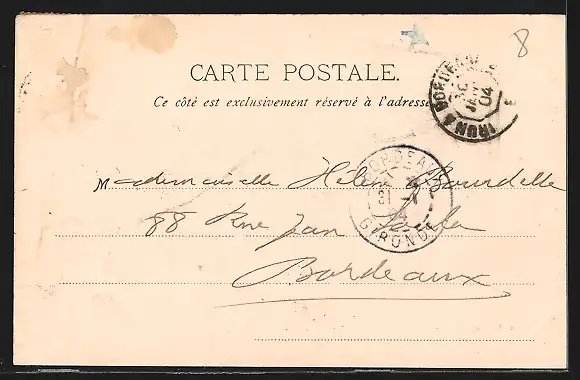 8
CARTE POSTALE.
Ce côté est exclusivement réservé à l'adresse
IRUN A BORDEAUX
30
JANV
04
Mademoiselle Hélène Bourdelle
BORDEAUX
31
GIRONDE
88 Rue
Bordeaux